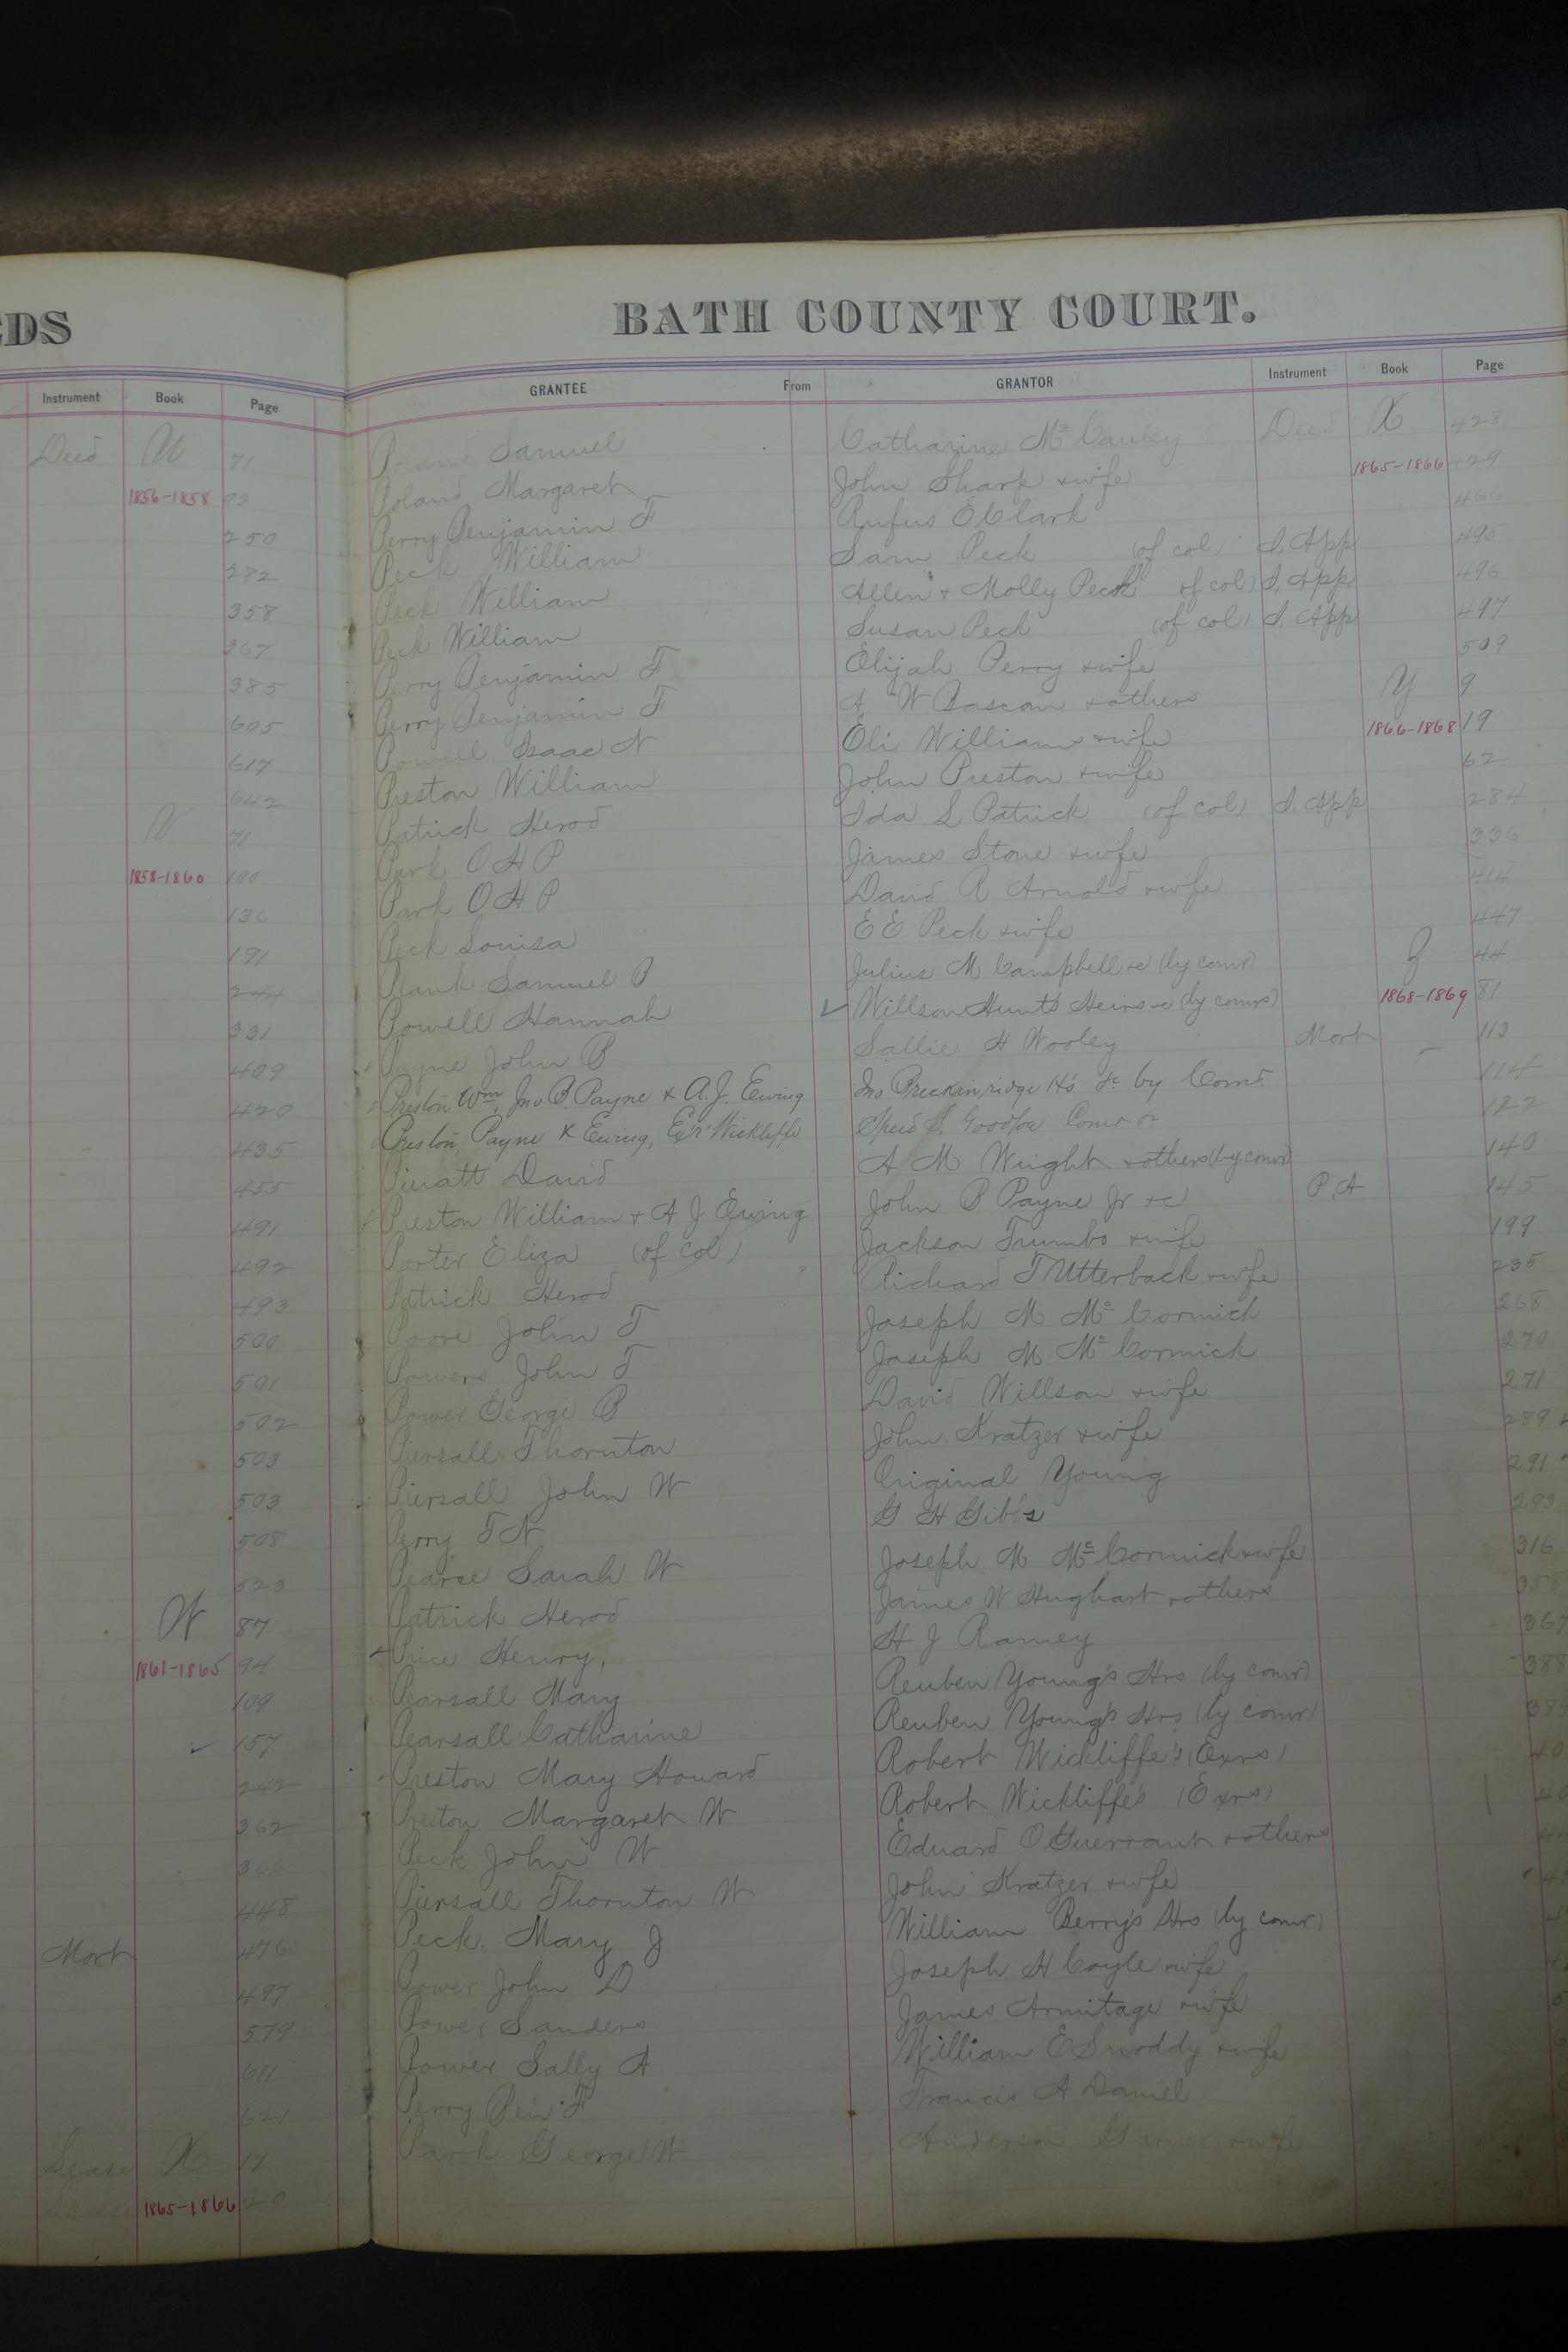 EDS
Instrument Book Page
Deed U 71
1856-1858 93
250
282
358
367
385
605
617
642
V 71
1858-1860 100
136
191
244
331
409
420
435
455
491
492
493
500
501
502
503
503
508
523
W 87
1861-1865 94
109
157
242
362
366
448
Mort 476
497
579
611
621
Lease X 17
Lease 1865-1866 20
BATH COUNTY COURT.
GRANTEE From GRANTOR Instrument Book Page
Poland Samuel Catharine Mc Cauley Deed X 428
Poland Margaret John Sharp & wife 1865-1866 429
Perry Benjamin F Rufus E Clark 466
Peck William Sam Peck (of col) I. App 495
Peck William Allen & Molly Peck of col) I. App 496
Peck William Susan Peck (of col) I. App 497
Perry Benjamin F Elijah Perry & wife 509
Perry Benjamin F A W Bascom & others Y 9
Powell Isaac N Eli Williams & wife 1866-1868 19
Preston William John Preston & wife 62
Patrick Herod Ida L Patrick (of col) I. App 284
Park O H P James Stone & wife 336
Park O H P David R Arnold & wife 414
Peck Louisa E E Peck & wife 447
Plank Samuel B Julius M Campbell &c (by comr) Z 44
Powell Hannah Willson Hunt's Heirs &c (by comrs) 1868-1869 81
Payne John B Sallie H Wooley Mort 113
Preston Wm, Jno B. Payne & A. J. Ewing Jno Breckinridge Hs &c by Comr. 114
Preston, Payne & Ewing, Exr Wickliffe Speed S. Goodloe Comr &c 122
Pieratt David A M Wright & others (by comr) 140
Preston William & A J Ewing John B Payne Jr &c P. A 145
Porter Eliza (of col) Jackson Trumbo & wife 199
Patrick Herod Richard T Utterback & wife 235
Poore John T Joseph M Mc Cormick 268
Powers John T Joseph M. Mc Cormick 270
Power George B David Willson & wife 271
Piersall Thornton John Kratzer & wife 289
Piersall John W Original Young 291
Perry T N G H Gibbs 293
Pearce Sarah W Joseph M Mc Cormick & wife 316
Patrick Herod James W Hughart & others
Price Henry, H J Ramey 367
Pearsall Mary Reuben Young's Hrs (by comr) 388
Pearsall Catharine Reuben Young's Hrs (by comr) 389
Preston Mary Howard Robert Wickliffe's (Exrs)
Preston Margaret W Robert Wickliffe's (Exrs)
Peck John W Edward O Guerrant & others
Piersall Thornton W John Kratzer & wife
Peck Mary J William Berry's Hrs (by comr)
Power John D Joseph H Coyle & wife
Power Sanders James Armitage & wife
Power Sally A William E Snoddy & wife
Perry Ben F Francis A Daniel
Park George W Anderson Garner & wife